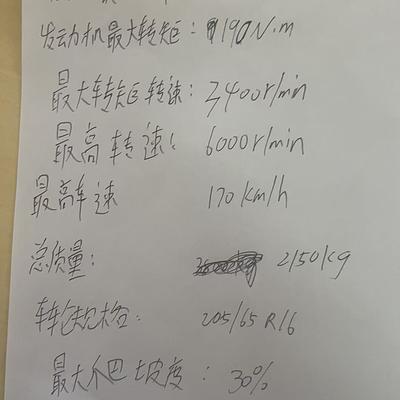 发动机最大转矩: 190N·m
最大转矩转速: 3400r/min
最高转速: 6000r/min
最高车速 170km/h
总质量: 2150kg
车轮规格: 205/65 R16
最大爬坡度: 30%